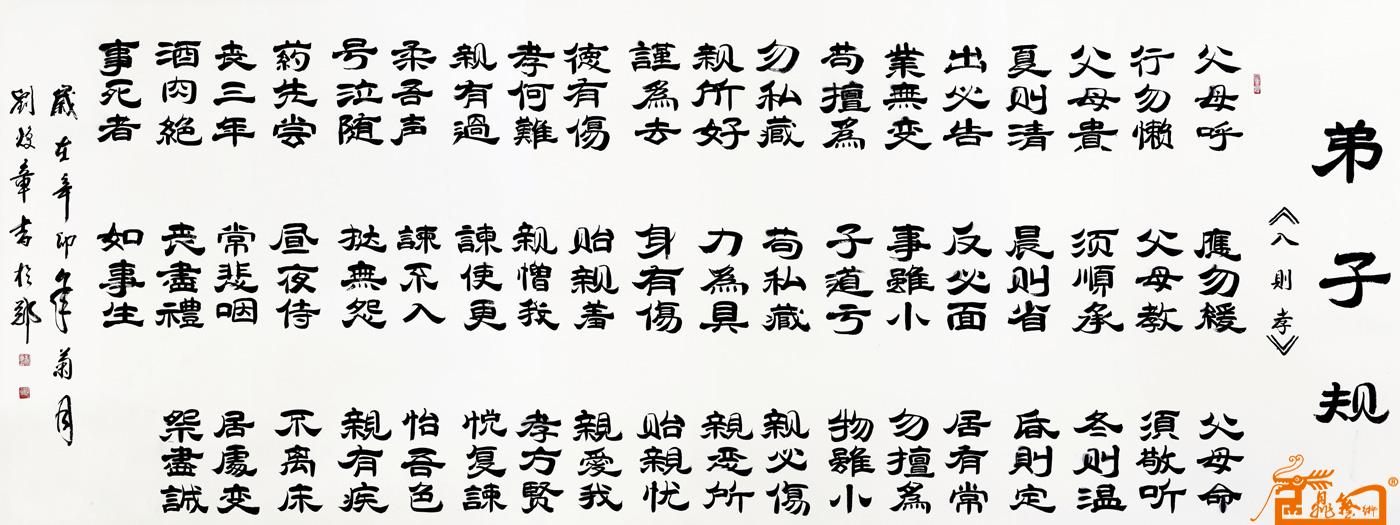 弟子规
《入則孝》
父母呼 應勿緩 父母命
行勿懒 父母教 須敬听
父母責 须順承 冬则温
夏则清 晨则省 昏則定
出必告 反必面 居有常
業無变 事雖小 勿擅為
苟擅為 子道亏 物雖小
勿私藏 苟私藏 親必傷
親所好 力為具 親惡所
謹為去 身有傷 贻親忧
德有傷 贻親羞 親愛我
孝何難 親憎我 孝方賢
親有過 諫使更 悦复諫
柔吾声 諫不入 怡吾色
号泣随 挞無怨 親有疾
药先尝 昼夜侍 不离床
丧三年 常悲咽 居處变
酒肉絶 丧盡禮 祭盡誠
事死者 如事生
歲在辛卯年菊月
劉俊章書於鄭